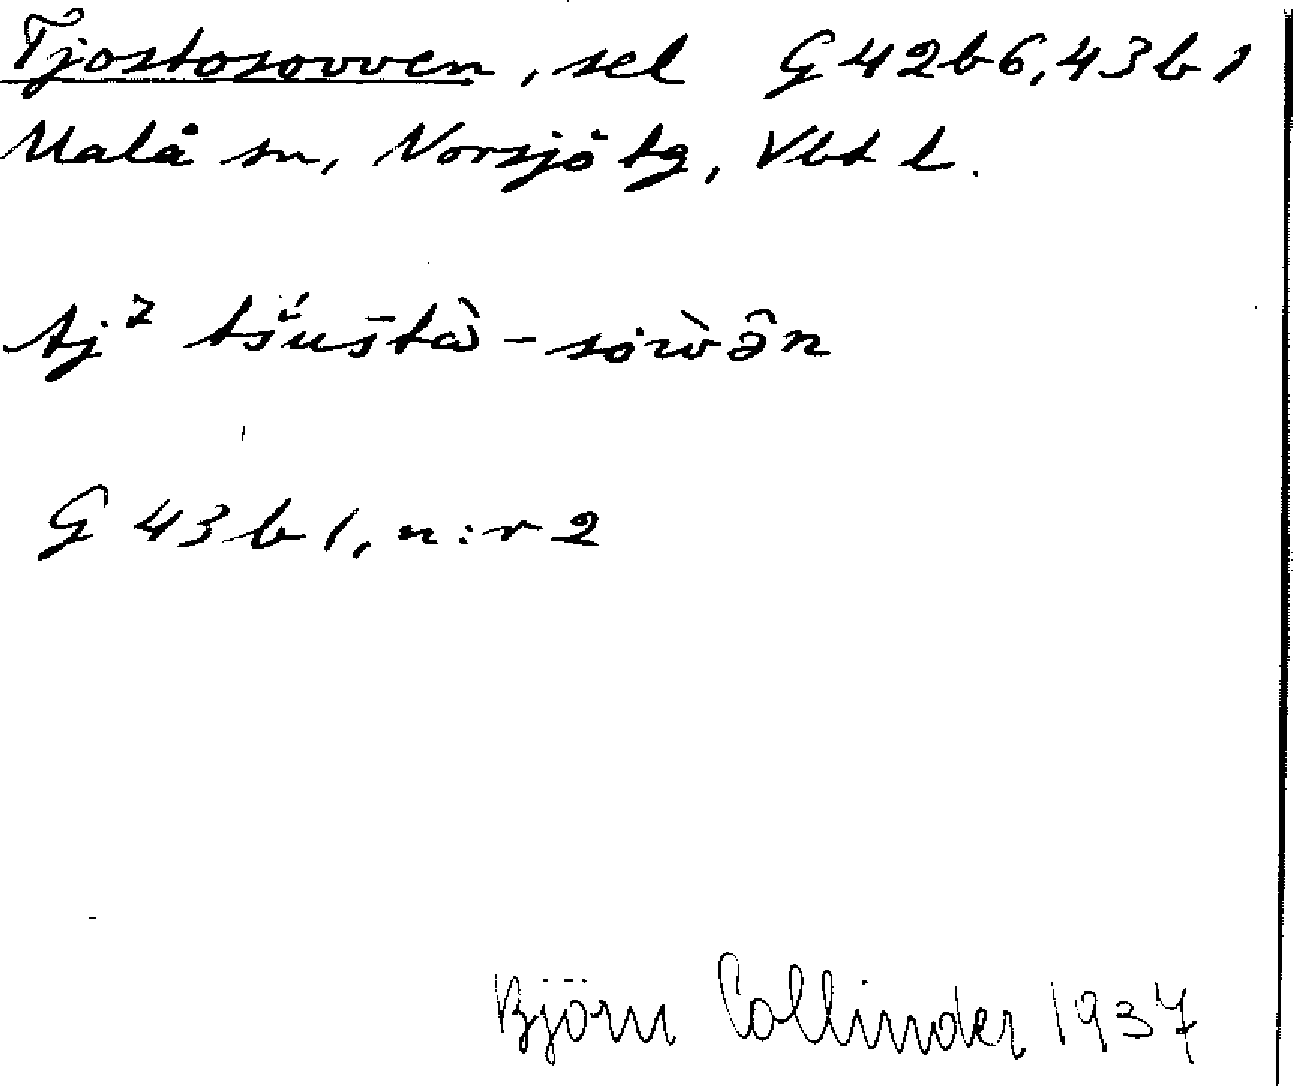 Tjostosovven, sel G 42b6, 43b1
Malå sn, Norsjö tg, Vbt l.
tj² tśuśtà-sòẁ̀ə̂n
G 43 b 1, n:r 2
Björn Collinder 1937